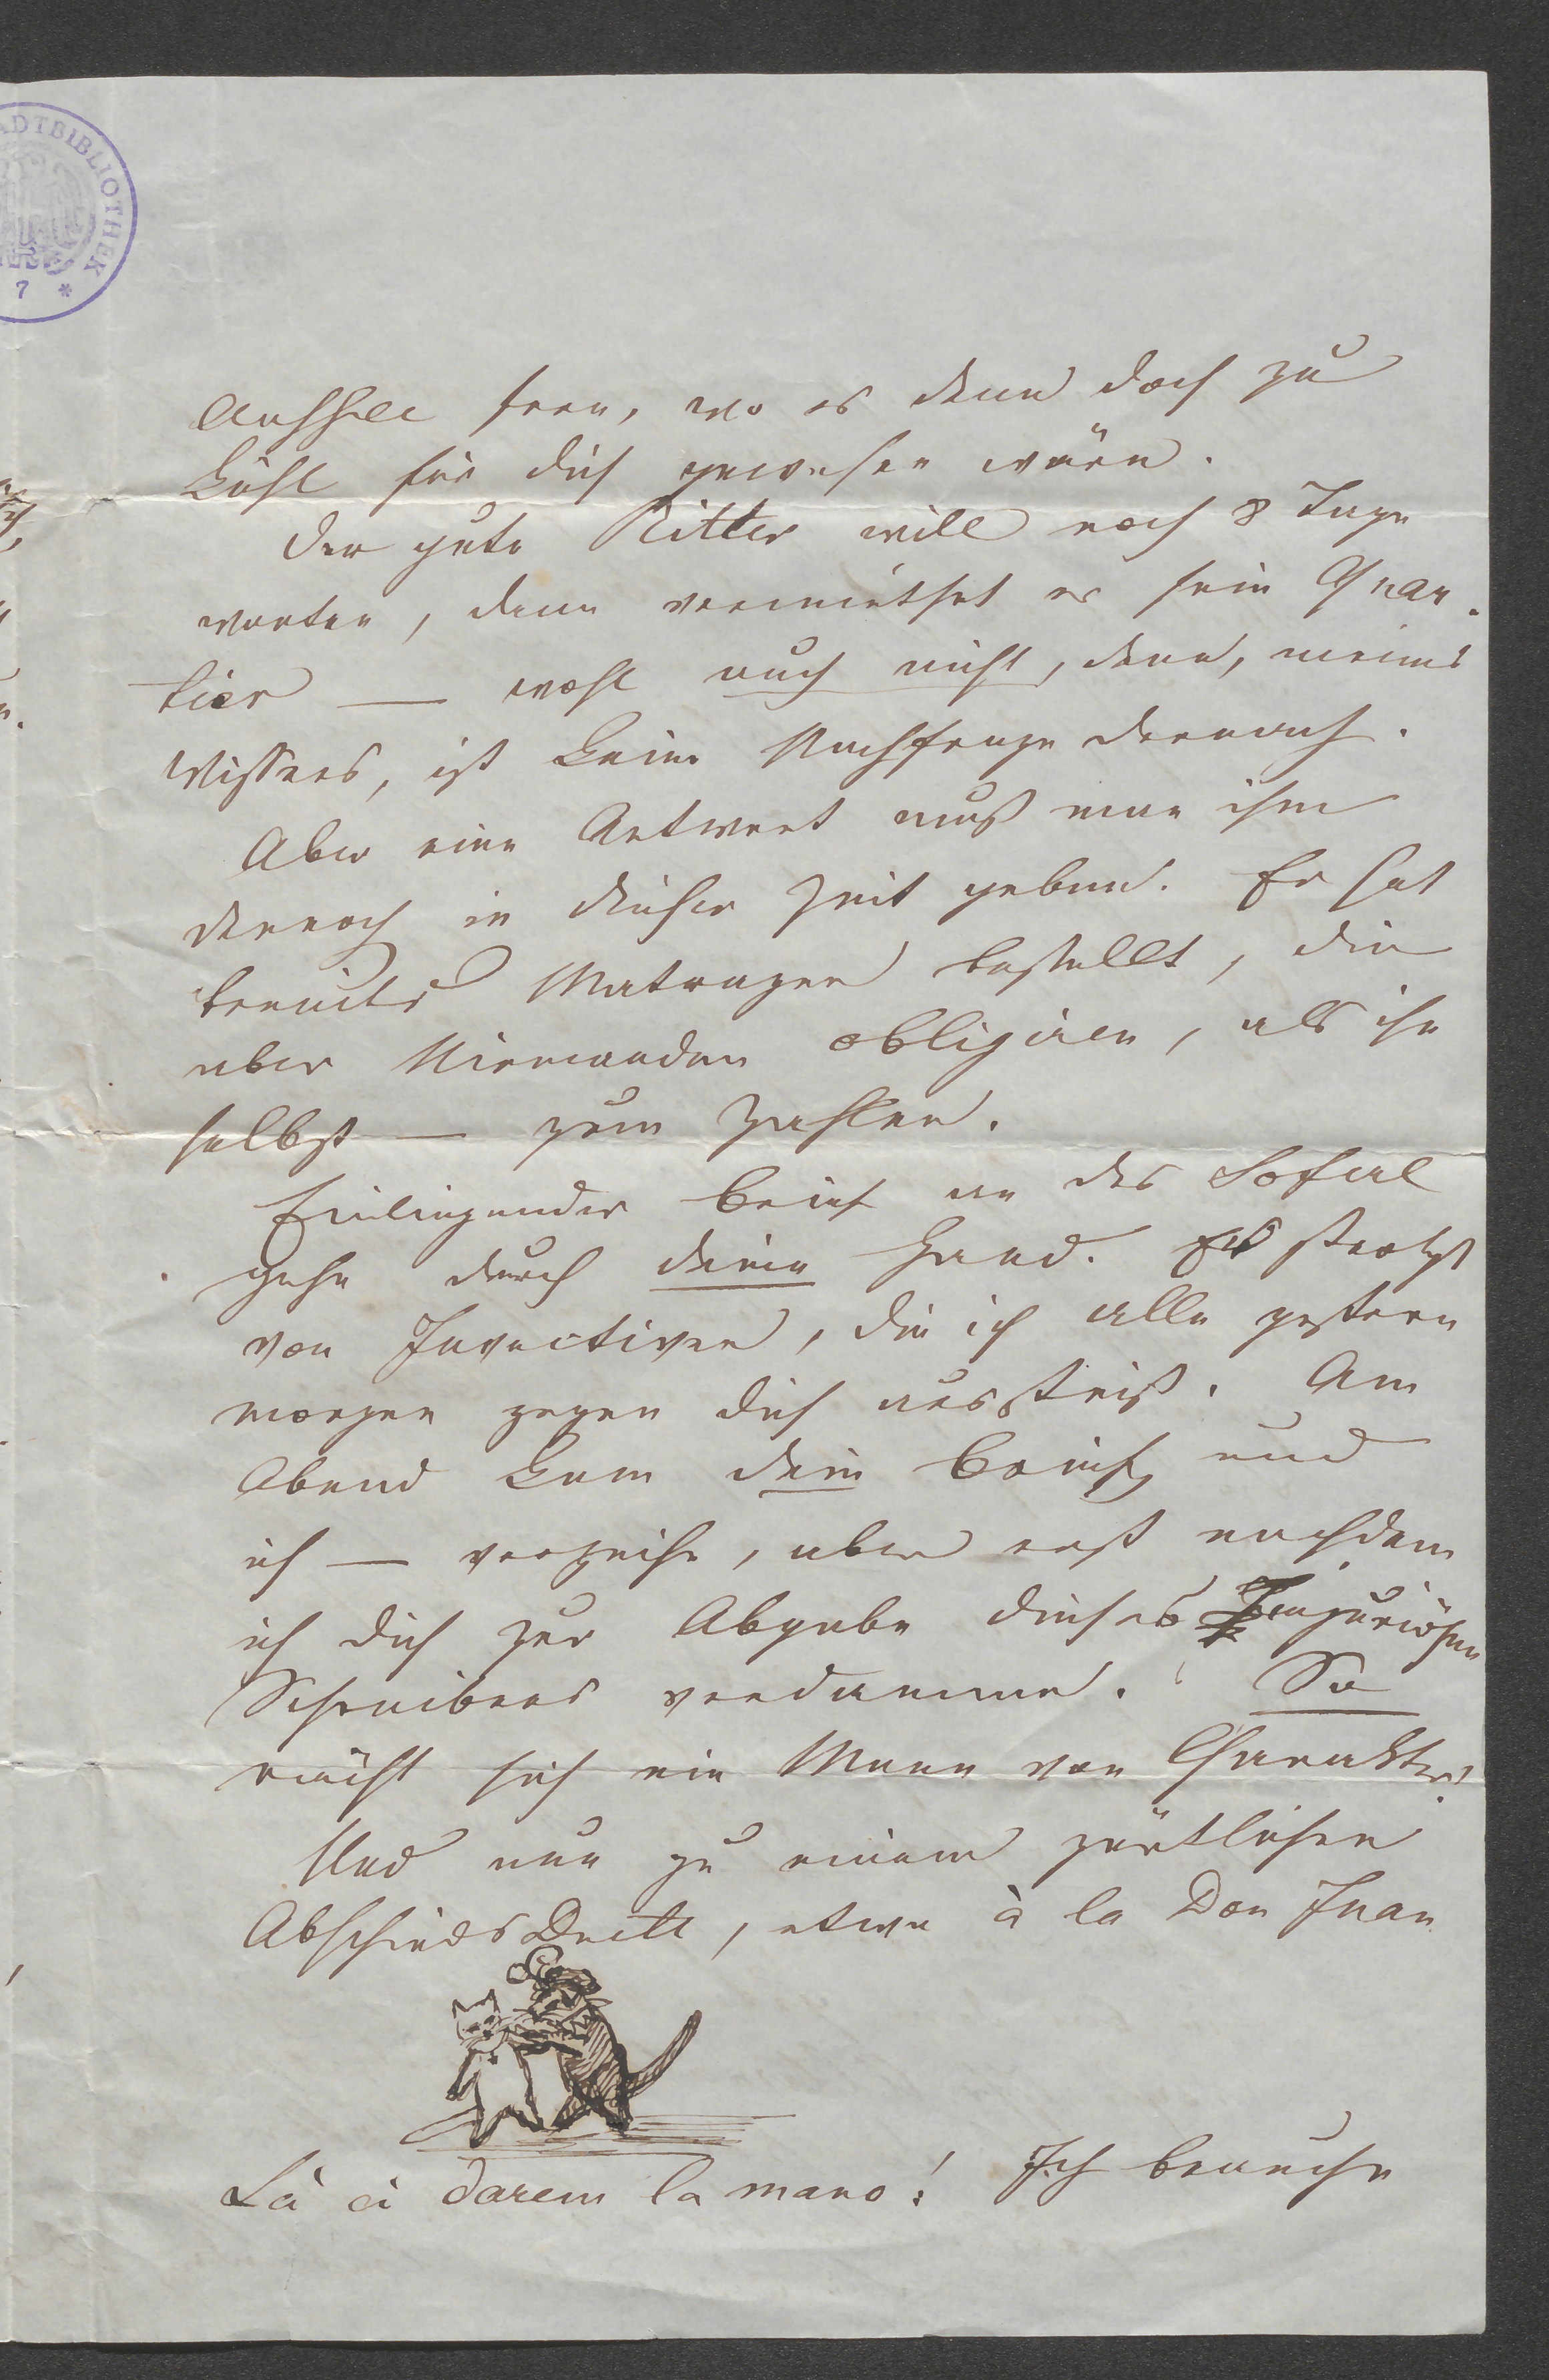 STADTBIBLIOTHEK
7 *
Aussee fern, wo es denn doch zu
kühl für dich gewesen wäre.
Der gute Ritter will noch 8 Tage
warten, dann vermiethet er sein Quar-
tier — wohl auch nicht, denn, meines
Wissens, ist keine Nachfrage darnach.
Aber eine Antwort muß man ihm
dennoch in dieser Zeit geben. Er hat
bereits Matratzen bestellt, die
aber Niemanden obligiren, als ihn
selbst — zum Zahlen.
Einliegender Brief an das
gehe durch deine Hand. Er strotzt
von Invectiven, die ich alle gestern
morgen gegen dich ausstieß. Am
Abend kam dein Brief, und
ich — verzeihe, aber erst nachdem
ich dich zur Abgabe dieses Injuriösen
Schreibens verdamme. So
rächt sich ein Mann von Charakter!
Und nun zu einem zärtlichen
Abschieds Duett, etwa à la Don Juan
Là ci darem la mano! Ich brauche